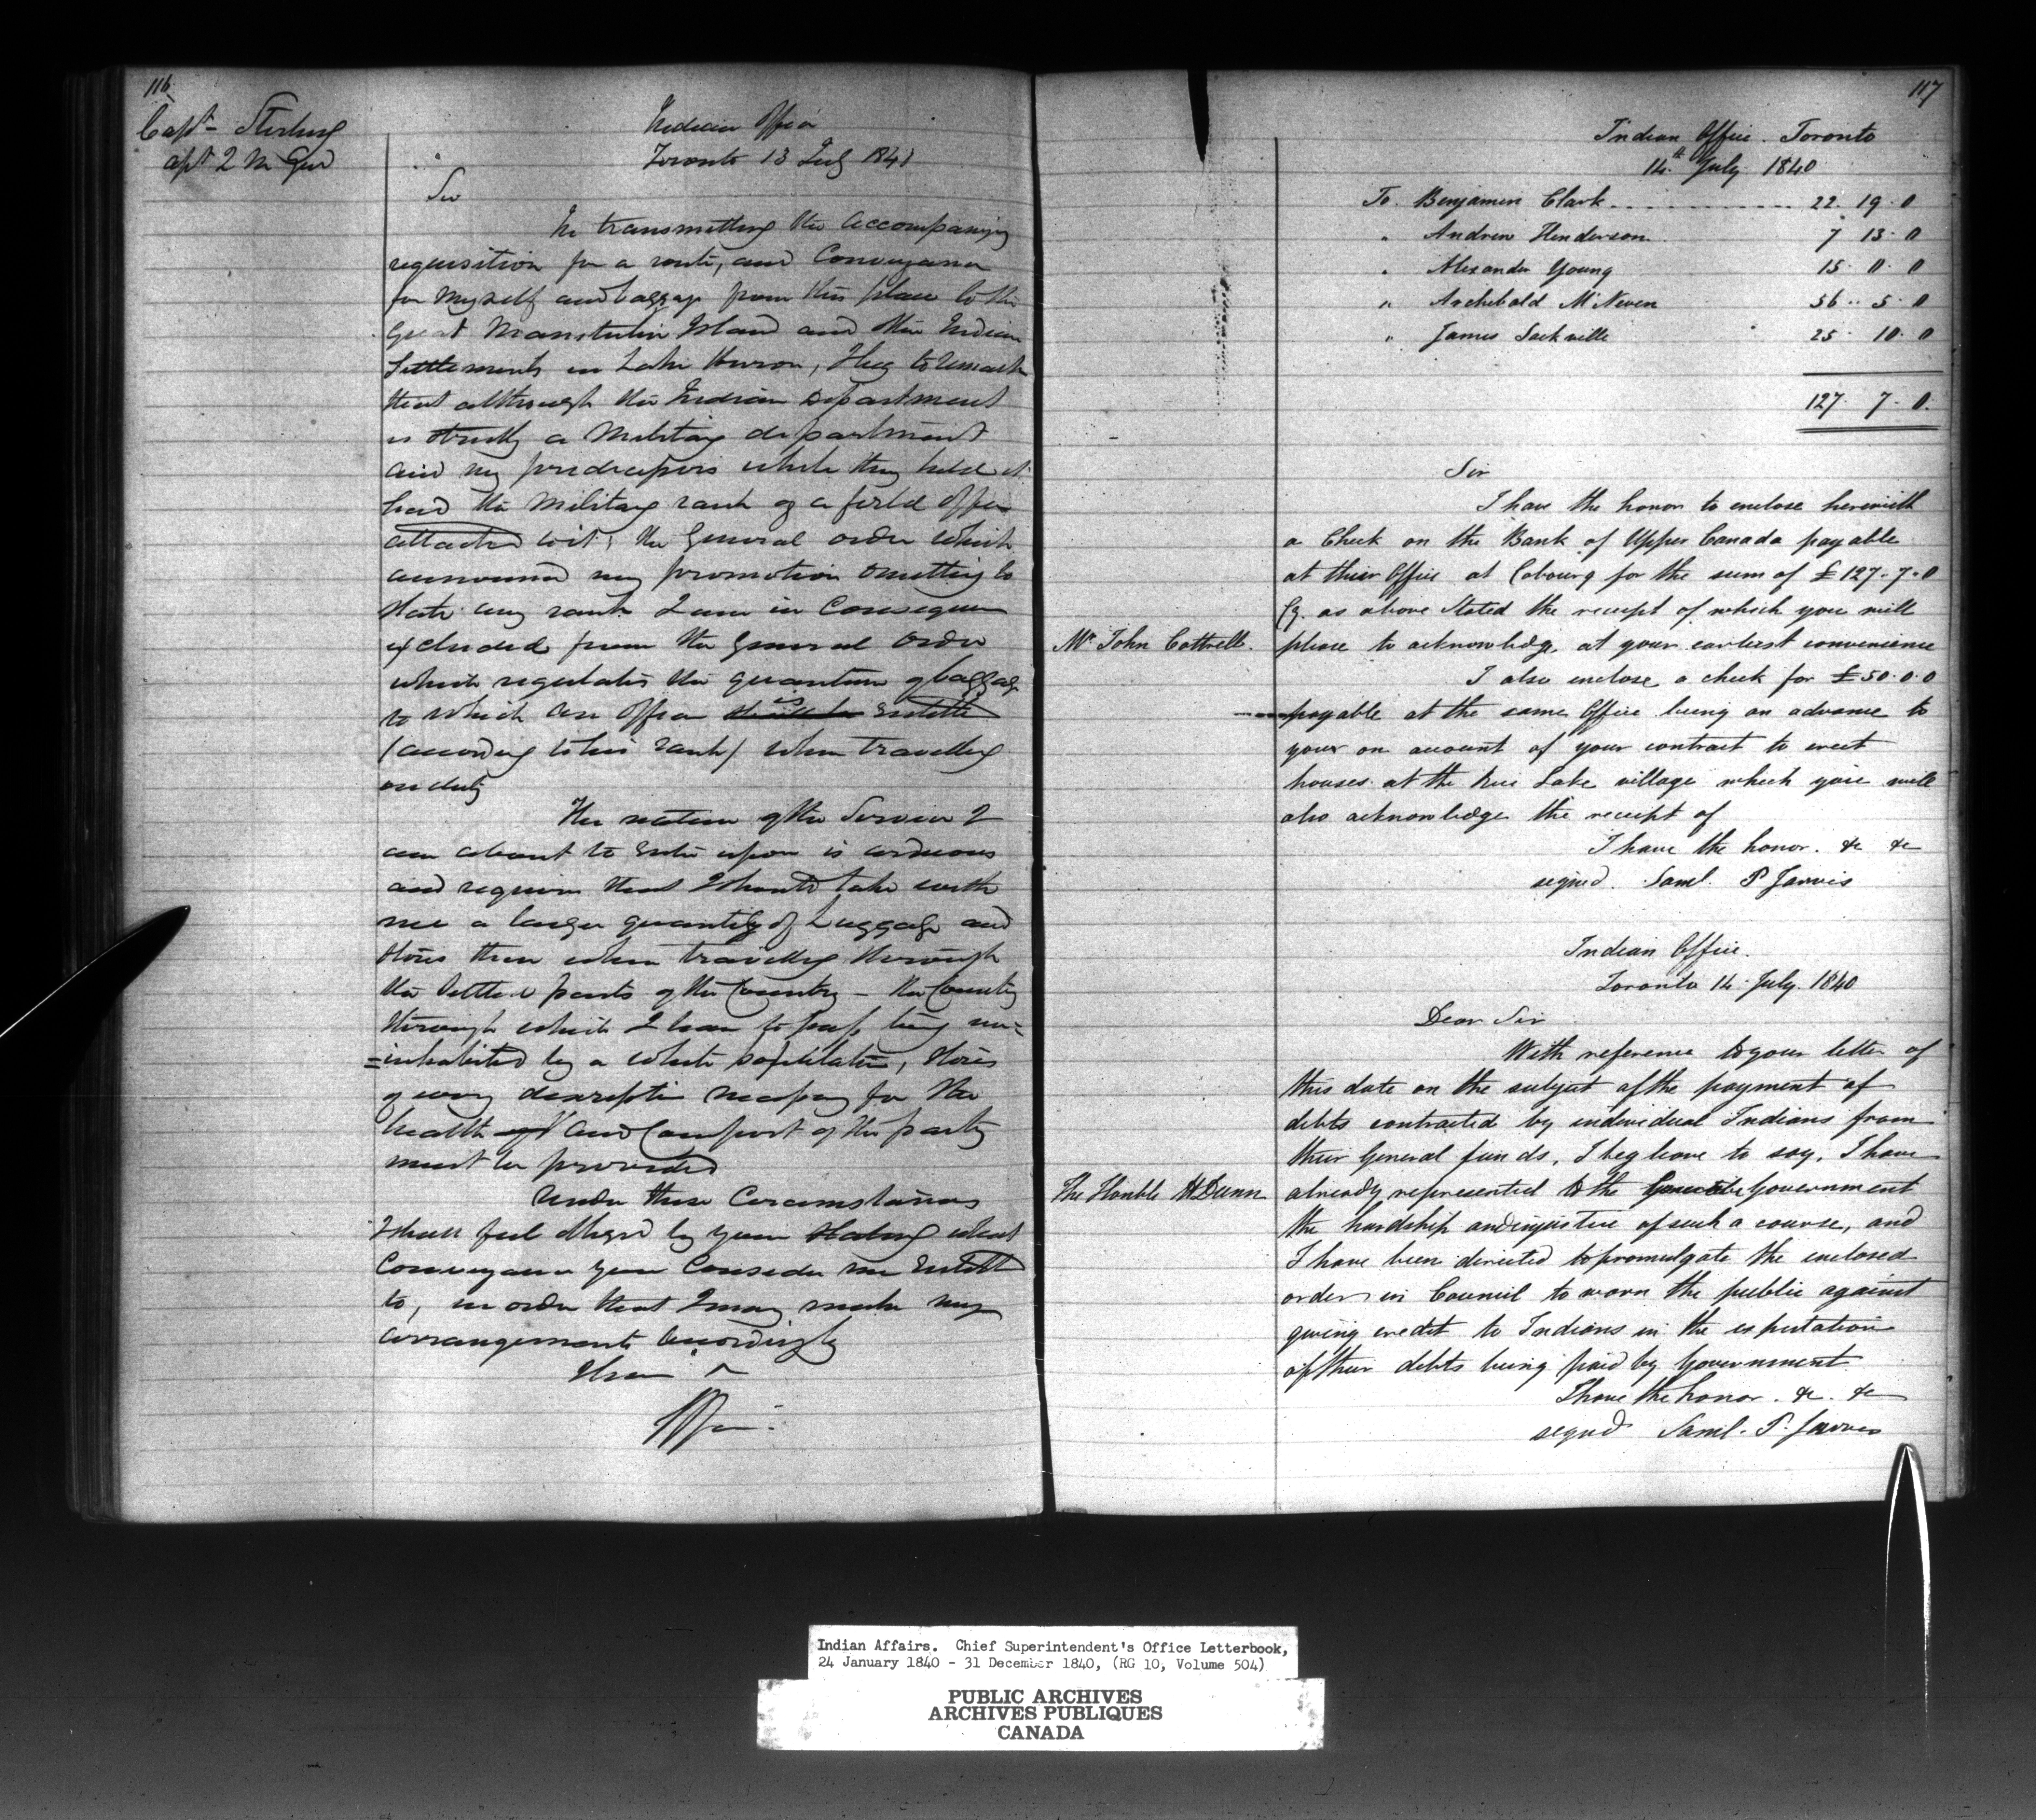 116
Capt Sterling
Indian Office
Toronto 13 July 1840
Sir
In transmitting the accompanying
requisition for a route, and Conveyance
for myself and baggage from this place to the
Great Manitoulin Island and the Indian
Settlements in Lake Huron, I beg to remark
that although the Indian Department
is strictly a Military department
and my predecessors while they held it
had the Military rank of a field officer
attached to it, the General order which
announced my promotion omitting to
state any rank I am in Consequence
excluded from the General Order
which regulates the quantum of baggage
to which an officer is entitled
(according to his rank) when travelling
on duty
The nature of the Service I
am about to enter upon is arduous
and requires that I should take with
me a larger quantity of Luggage and
stores than when travelling through
the settled parts of the Country – the Country
through which I have to pass being un=
=inhabited by a white population, stores
of every description necessary for the
health and Comfort of the party
must be provided
Under these Circumstances
I shall feel obliged by your stating what
Conveyance you Consider me Entitled
to, in order that I may make my
arrangements accordingly
I have
117
Indian Office. Toronto
14th July 1840
To Benjamin Clark 22. 19. 0
" Andrew Henderson 7 13. 0
" Alexander Young 15. 0. 0
" Archibald McNeven 56. 5. 0
" James Sackville 25. 10. 0
127. 7. 0.
Sir
I have the honor to enclose herewith
a Check on the Bank of Upper Canada payable
at their Office at Cobourg for the sum of £127.7.0
Cy. as above stated the receipt of which you will
Mr John Cottrell. please to acknowledge, at your earliest convenience
I also enclose a check for £50.0.0
payable at the same Office being an advance to
your on account of your contract to erect
houses at the Rice Lake village which you will
also acknowledge the receipt of
I have the honor. &c &c
signed. Saml. P Jarvis
Indian Office.
Toronto 14 July. 1840
Dear Sir
With reference to your letter of
this date on the subject of the payment of
debts contracted by individual Indians from
their General funds, I beg leave to say, I have
The Honble H Dunn already represented to the Government
the hardship and injustice of such a course, and
I have been directed to promulgate the enclosed
order in Council to warn the public against
giving credit to Indians in the expectation
of their debts being paid by Government
I have the honor. &c. &c
signed Saml. P. Jarvis
Indian Affairs. Chief Superintendent's Office Letterbook,
24 January 1840 - 31 December 1840, (RG 10, Volume 504)
PUBLIC ARCHIVES
ARCHIVES PUBLIQUES
CANADA